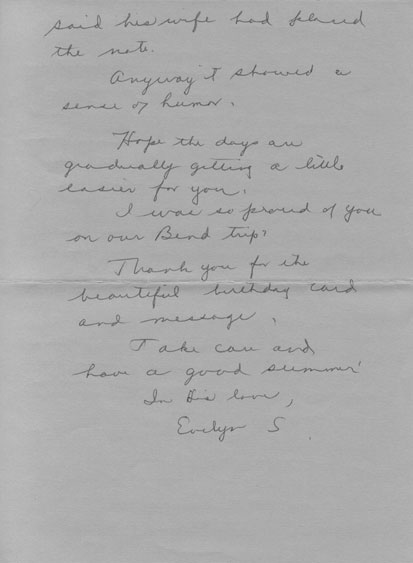 said his wife had found
the note.
Anyway it showed a
sense of humor.
Hope the days are
gradually getting a little
easier for you.
I was so proud of you
on our Bend trip!
Thank you for the
beautiful birthday card
and message.
Take care and
have a good summer!
In His love,
Evelyn S.